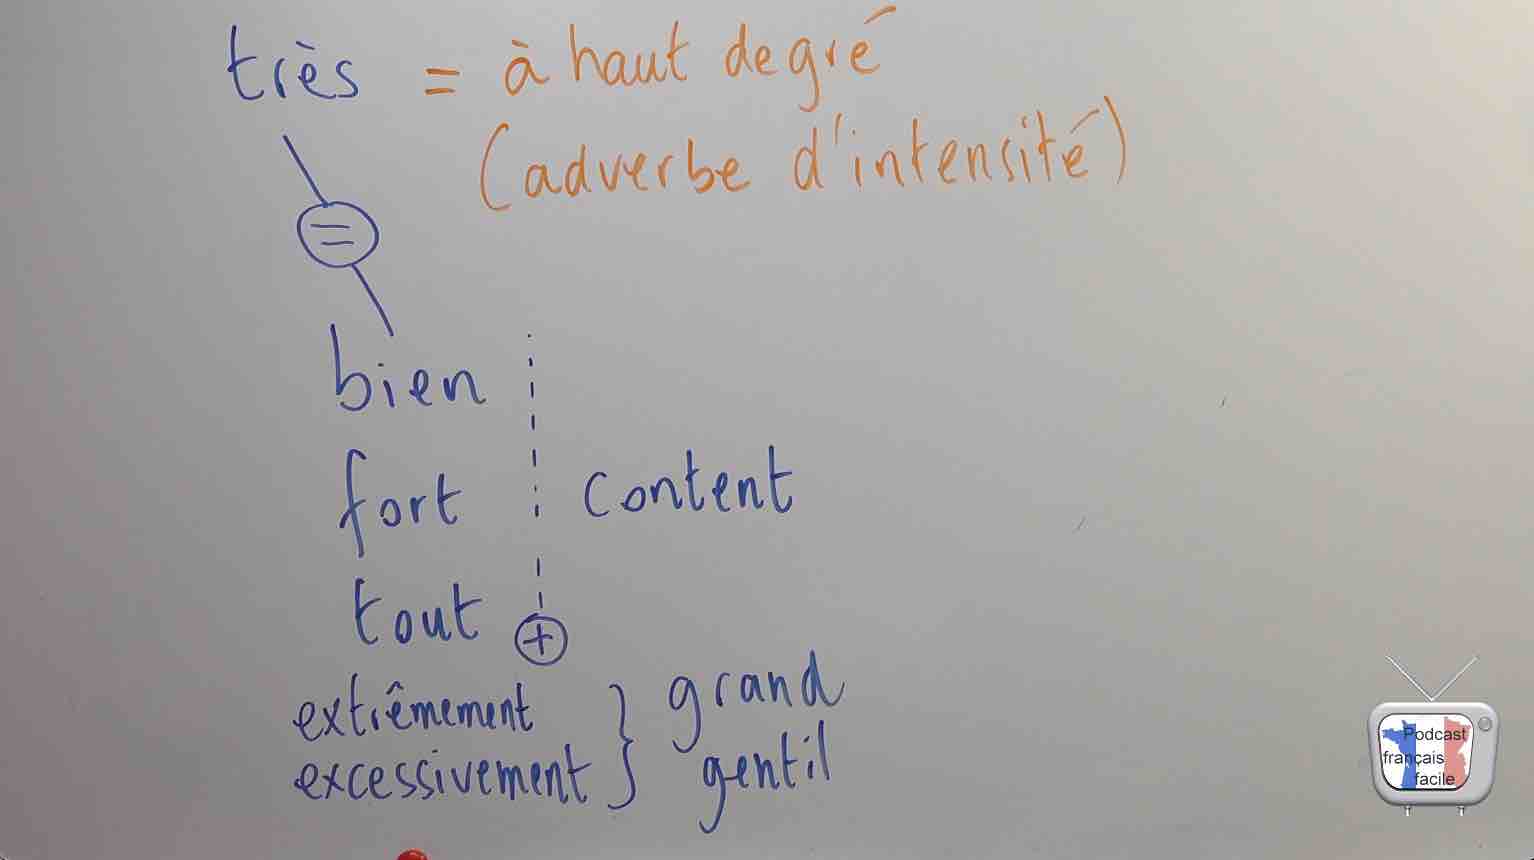 très = à haut degré
(adverbe d'intensité)
=
bien
fort content
tout +
extrêmement } grand
excessivement } gentil
Podcast
français
facile